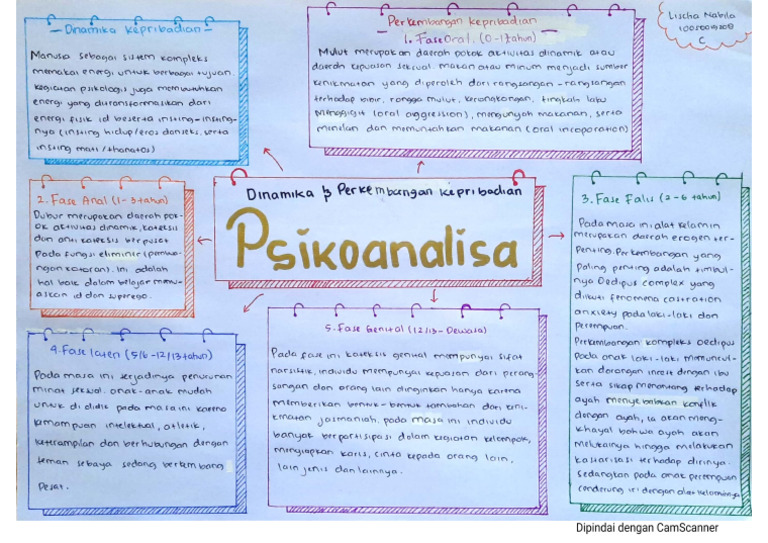 Dinamika Kepribadian
Manusa sebagai sistem kompleks
memakai energi untuk berbagai tujuan.
Kegiatan psikologis juga membutuhkan
energi yang ditransformasikan dari
energi fisik id beserta insting-insting-
nya (insting hidup/eros dan seks, serta
insting mati/thanatos)
Perkembangan Kepribadian
1. Fase Oral. (0-1 tahun)
Mulut merupakan daerah pokok aktivitas dinamik atau
daerah kepuasan seksual makan atau minum menjadi sumber
kenikmatan yang diperoleh dari rangsangan-rangsangan
terhadap bibir, rongga mulut, kerongkongan, tingkah laku
menggigit (oral aggression), mengunyah makanan, serta
menelan dan memuntahkan makanan (oral incorporation)
Lischa Nabila
C
2. Fase Anal (1-3 tahun)
Dubur merupakan daerah pok-
ok aktivitas dinamik, kateksis
dan anti kateksis berpusat
pada fungsi eliminir (pembu-
ngan kotoran). Ini adalah
hal baik dalam belajar mengu-
askan id dan superego.
Dinamika & Perkembangan Kepribadian
Psikoanalisa
3. Fase Falis (2-6 tahun)
Pada masa ini alat kelamin
merupakan daerah erogen ter-
penting. Perkembangan yang
paling penting adalah timbul-
nya Oedipus complex yang
diikuti fenomena castration
anxiety pada laki-laki dan
perempuan.
Perkembangan kompleks Oedipus
pada anak laki-laki memuncul-
kan dorongan incest dengan ibu
serta sikap menentang terhadap
ayah menyebabkan konflik
dengan ayah, ia akan meng-
khayal bahwa ayah akan
melukainya hingga melakukan
kastarisasi terhadap dirinya.
Sedangkan pada anak perempuan
cenderung iri dengan alat kelaminnya
4. Fase laten (5/6-12/13 tahun)
Pada masa ini terjadinya penurunan
minat seksual. anak-anak mudah
untuk di didik pada masa ini karena
kemampuan intelektual, atletik,
keterampilan dan berhubungan dengan
teman sebaya sedang berkembang
pesat.
5. Fase Genital (12/13-Dewasa)
Pada fase ini kateksis genital mempunyai sifat
narsistik, individu mempunyai kepuasan dari perang-
sangan dan orang lain diinginkan hanya karena
memberikan bentuk-bentuk tambahan dari keni-
kmatan jasmaniah. pada masa ini individu
banyak berpartisipasi dalam kegiatan kelompok,
menyiapkan karir, cinta kepada orang lain,
lain jenis dan lainnya.
Dipindai dengan CamScanner